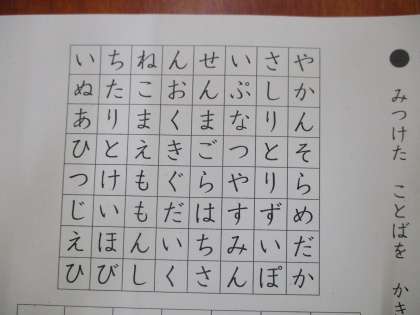 いちねんせいさや
ぬたこおんぷしか
ありまくまなりん
ひとえきごつとそ
つけもぐらやりら
じいもだはすずめ
えほんいちみいだ
ひびしくさんぽか
みつけた ことばを かき